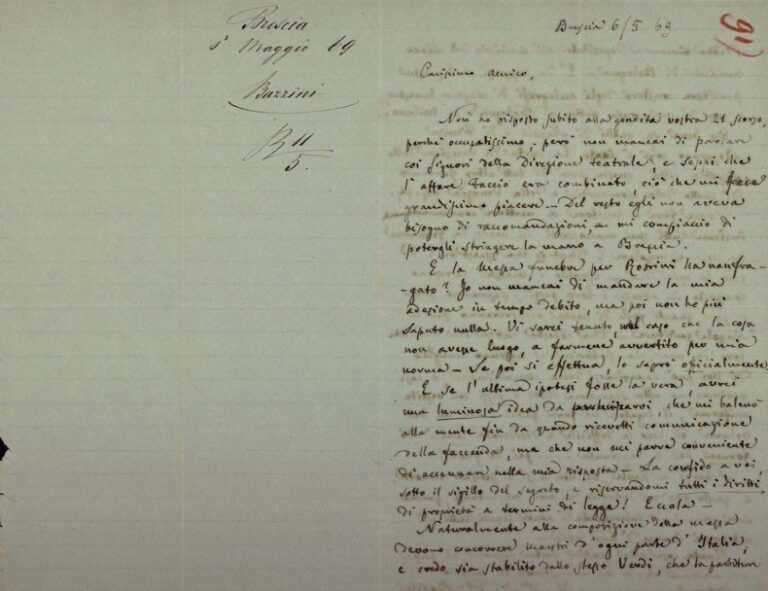 Brescia
6 Maggio 69
Bazzini
R 11
5.
91
Brescia 6/5 69
Carissimo Amico,
Non ho risposto subito alla gradita vostra 21 scorso,
perchè occupatissimo; però non mancai di parlare
coi Signori della Direzione teatrale, e seppi che
l'affare Faccio era combinato, ciò che mi fece
grandissimo piacere – Del resto egli non aveva
bisogno di raccomandazioni, e mi compiaccio di
potergli stringere la mano a Brescia.
E la Messa funebre per Rossini ha naufra-
-gato? Io non mancai di mandare la mia
adesione in tempo debito, ma poi non ho più
saputo nulla. Vi sarei tenuto, nel caso che la cosa
non avesse luogo, a farmene avvertito per mia
norma – Se poi si effettua, lo saprò officialmente
E se l'ultima ipotesi fosse la vera, avrei
una luminosa idea da parteciparvi, che mi balenò
alla mente fin da quando ricevetti comunicazione
della faccenda, ma che non mi parve conveniente
di accennare nella mia risposta – La confido a voi,
sotto il sigillo del segreto, e riservandomi tutti i diritti
di proprietà a termini di legge! Eccola –
Naturalmente alla composizione della messa
devono concorrere maestri d'ogni parte d'Italia,
e credo sia stabilito dallo stesso Verdi, che la partitura